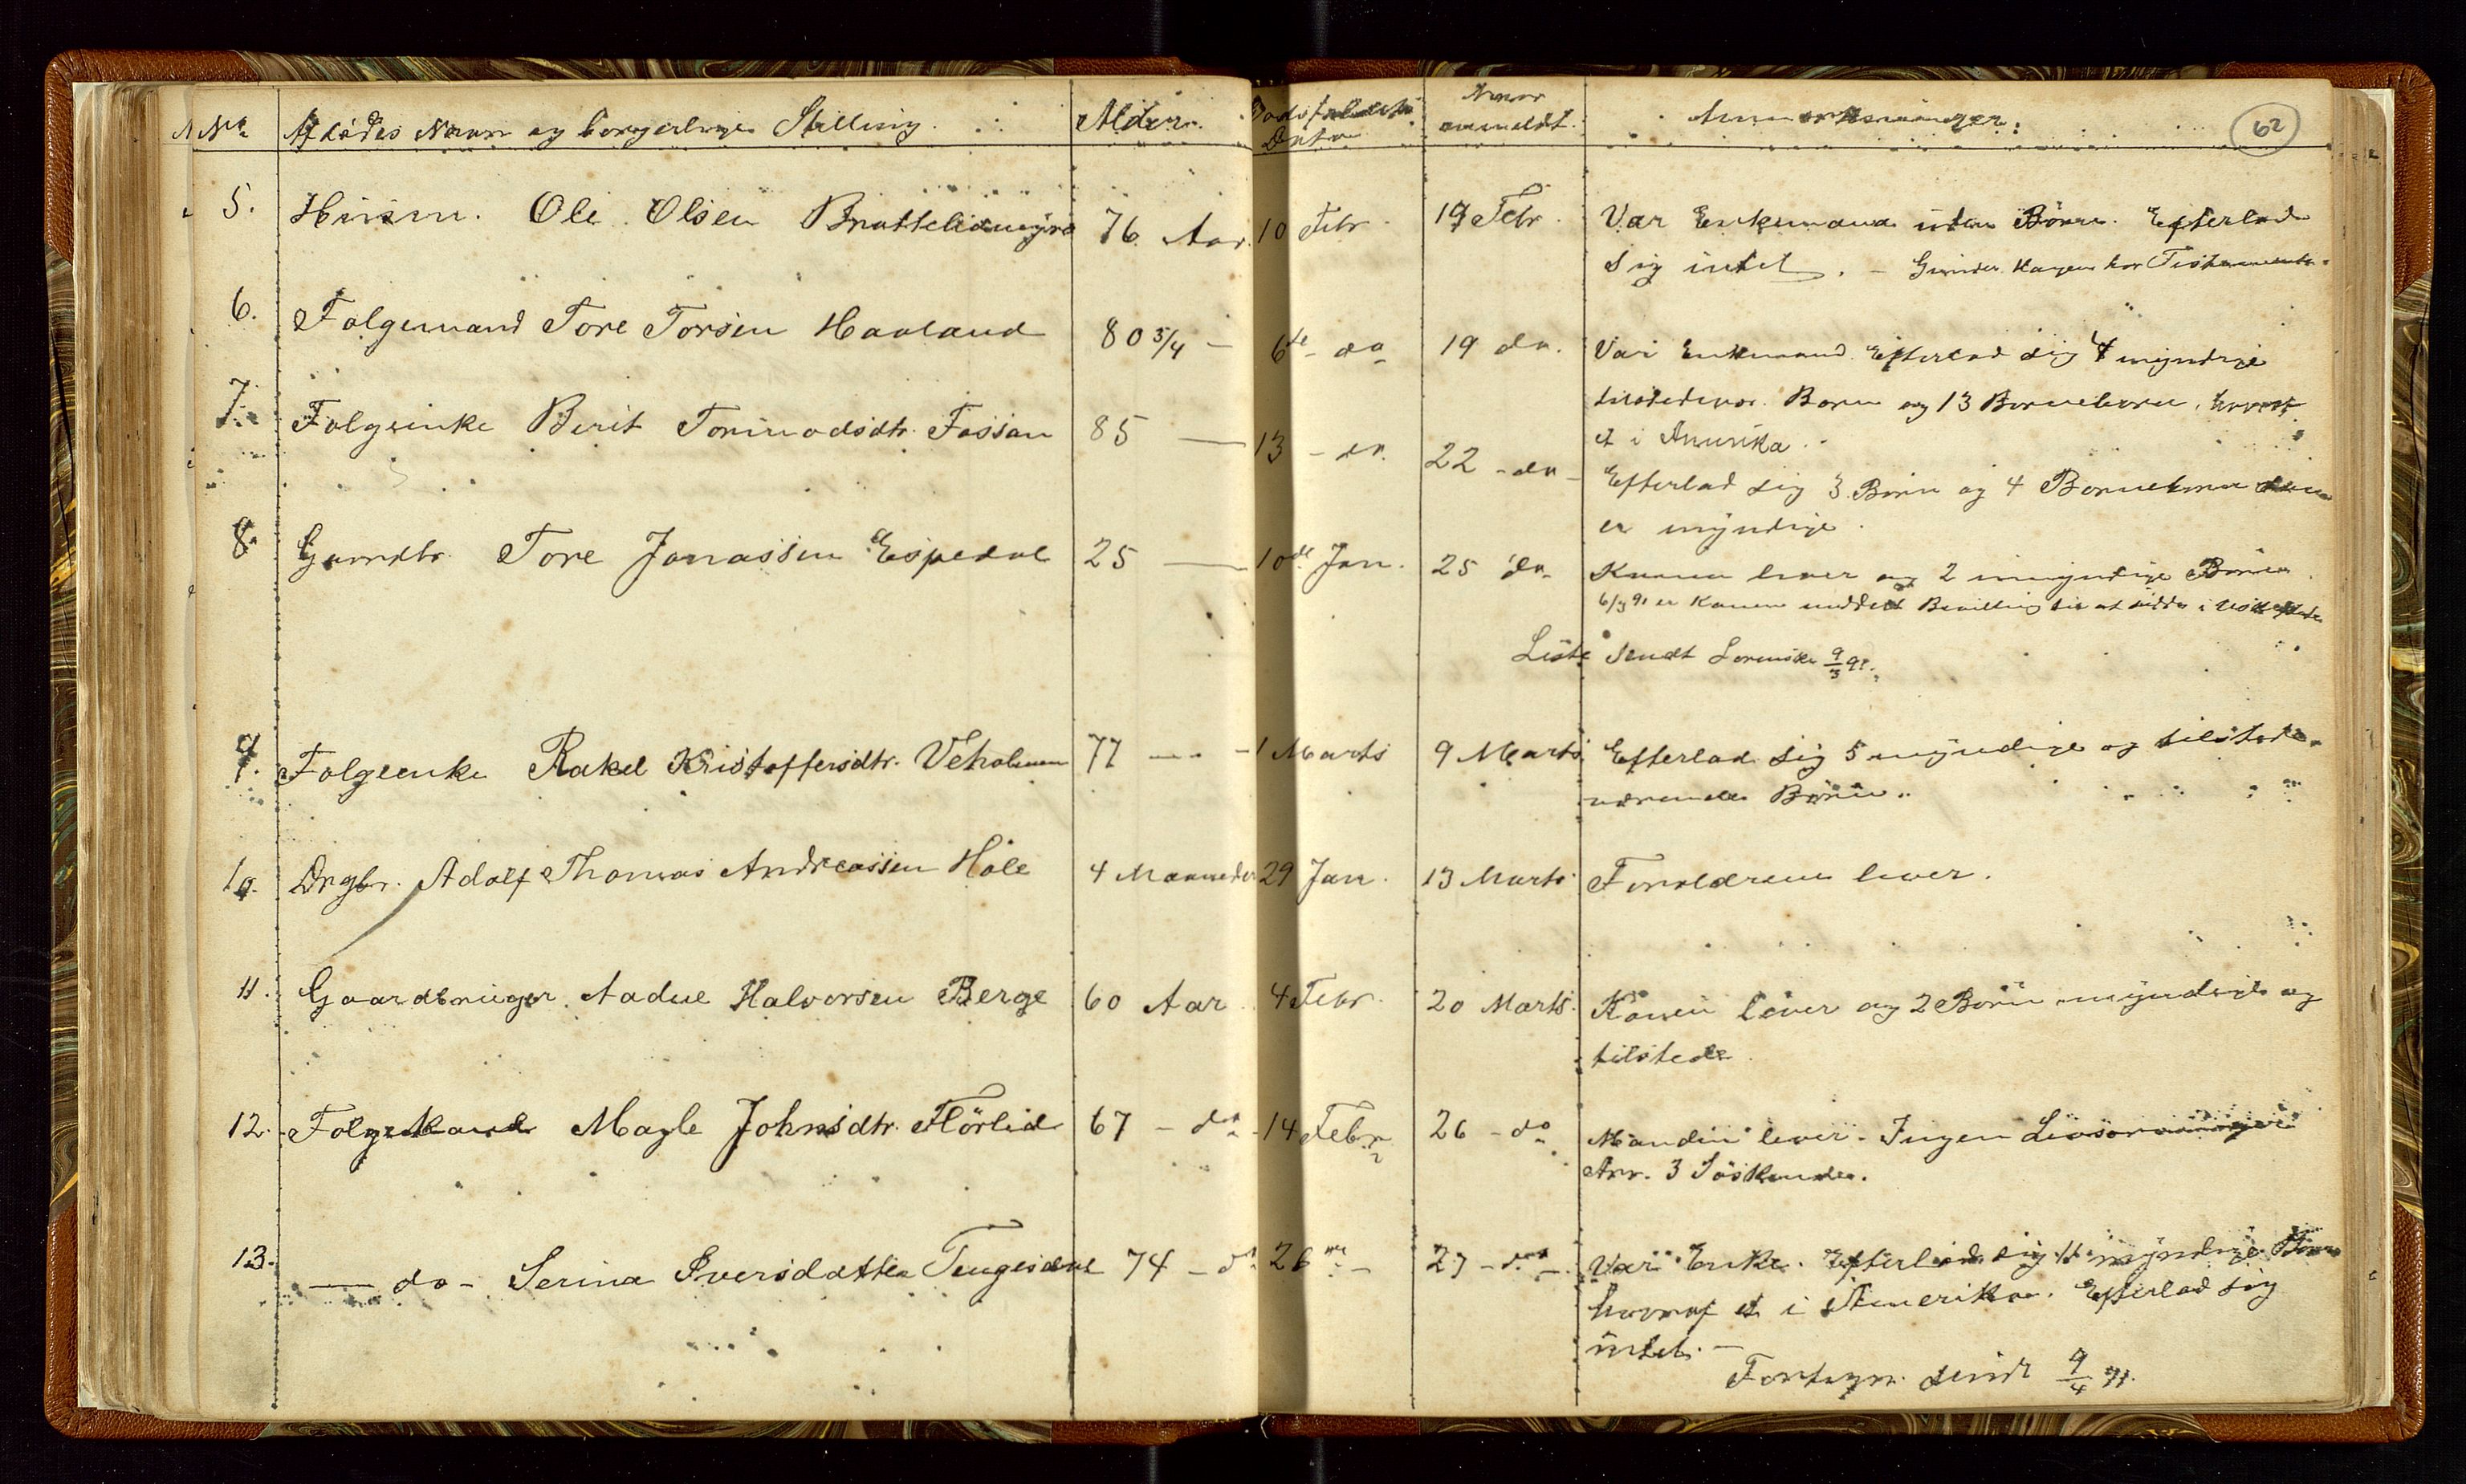 No. Afdødes Navn og borgerlige Stilling. Alder. Dødsfaldets Datum Naar anmeldt. Anmærkninger. 62
5. Huusm. Ole Olsen Brattelidmyra 76 Aar. 10 Febr. 19 Febr. Var Enkemand uden Børn. Efterlod
sig intet. –
6. Folgemand Tore Torsen Haaland 80 3/4 – 6te – do 19 do. Var Enkemand. Efterlod sig 4 myndige
tilstedevær. Børn og 13 Børnebørn,
et i Amerika.
7. Folgeenke Berit Tormodsdtr. Fossan 85 — 13 – do. 22 – do – Efterlod sig 3 Børn og 4 Børnebørn
er myndige.
8. Gaardbr. Tore Jonassen Espedal 25 — 10de Jan. 25 do. Konen lever og 2 umyndige Børn.
6/3 91 er Konen meddelt Bevilling til at sidde i uskiftet
Liste sendt Sorensk. 9/3 91.
9. Folgeenke Rakel Kristoffersdtr. Veholmen 77 — – 1 Marts 9 Marts Efterlod sig 5 myndige og tilstede-
værende Børn.
10. Drgbr. Adolf Thomas Andreassen Hole 4 Maaneder 29 Jan. 13 Marts Forældrene lever.
11. Gaardbruger Aadne Halvorsen Berge 60 Aar 4 Febr. 20 Marts. Konen lever og 2 Børn myndige og
tilstede.
12. Folgekone Magle Johnsdtr. Flörlid 67 – do – 14 Febr. 26 – do Manden lever. Ingen Livsarvinger
Arv. 3 Söskende.
13. — do – Serina Iversdatter Tengesdal 74 – do 26 – 27 – do – Var Enke. Efterlod sig 4 myndige Børn
hvoraf et i Amerika. Efterlod sig
intet. –
Fortegn. sendt 9/4 91.